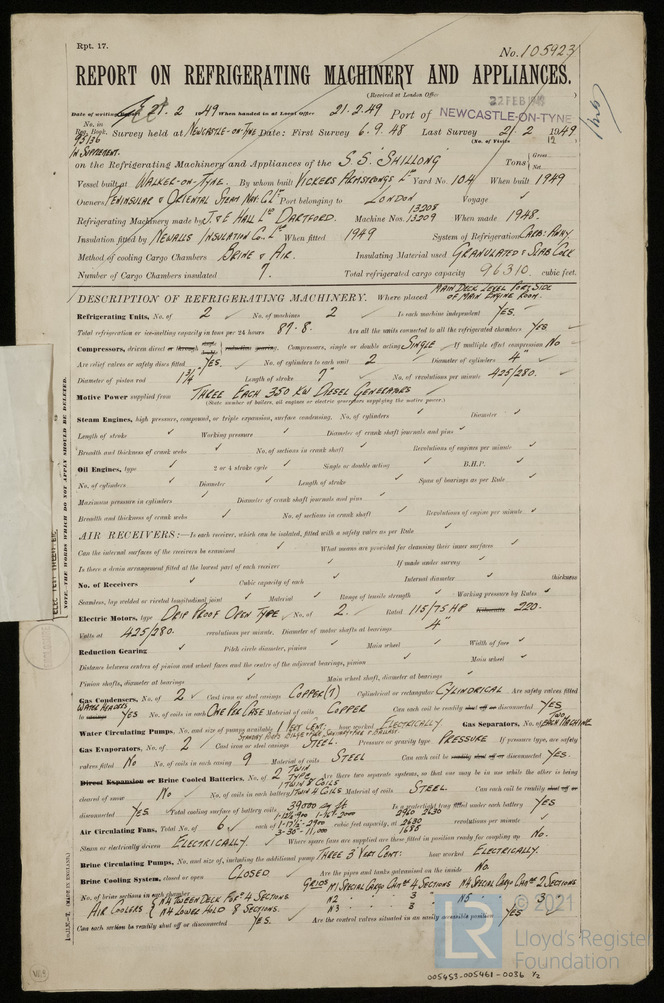 Rpt. 17.
No. 105923
REPORT ON REFRIGERATING MACHINERY AND APPLIANCES.
(Received at London Office
Date of writing Report 21.2 1949 When handed in at Local Office 21.2.49 Port of NEWCASTLE-ON-TYNE
22 FEB 1949
No. in Reg. Book. Survey held at NEWCASTLE-ON-TYNE Date: First Survey 6.9.48 Last Survey 21.2 1949
95136 IN SUPPLEMENT. (No. of Visits 12)
on the Refrigerating Machinery and Appliances of the S.S. "SHILLONG" Tons { Gross Net
Vessel built at WALKER-ON-TYNE. By whom built VICKERS ARMSTRONGS LD Yard No. 104 When built 1949
Owners PENINSULAR & ORIENTAL STEAM NAV. CO LD Port belonging to LONDON Voyage
Refrigerating Machinery made by J & E HALL LD DARTFORD. Machine Nos. 13208 13209 When made 1948.
Insulation fitted by NEWALLS INSULATION CO. LD When fitted 1949 System of Refrigeration CARB: ANHY
Method of cooling Cargo Chambers BRINE & AIR. Insulating Material used GRANULATED & SLAB CORK
Number of Cargo Chambers insulated 7. Total refrigerated cargo capacity 96310. cubic feet.
DESCRIPTION OF REFRIGERATING MACHINERY. Where placed MAIN DECK LEVEL PORT SIDE OF MAIN ENGINE ROOM.
Refrigerating Units, No. of 2 No. of machines 2 Is each machine independent YES.
Total refrigeration or ice-melting capacity in tons per 24 hours 87.8. Are all the units connected to all the refrigerated chambers YES
Compressors, driven direct or through reduction gearing. Compressors, single or double acting SINGLE If multiple effect compression NO
Are relief valves or safety discs fitted YES. No. of cylinders to each unit 2 Diameter of cylinders 4"
Diameter of piston rod 1 3/4" Length of stroke 7" No. of revolutions per minute 425/280.
Motive Power supplied from THREE EACH 350 KW DIESEL GENERATORS
(State number of boilers, oil engines or electric generators supplying the motive power.)
Steam Engines, high pressure, compound, or triple expansion, surface condensing. No. of cylinders Diameter
Length of stroke Working pressure Diameter of crank shaft journals and pins
Breadth and thickness of crank webs No. of sections in crank shaft Revolutions of engines per minute
Oil Engines, type 2 or 4 stroke cycle Single or double acting B.H.P.
No. of cylinders Diameter Length of stroke Span of bearings as per Rule
Maximum pressure in cylinders Diameter of crank shaft journals and pins
Breadth and thickness of crank webs No. of sections in crank shaft Revolutions of engine per minute
AIR RECEIVERS:—Is each receiver, which can be isolated, fitted with a safety valve as per Rule
Can the internal surfaces of the receivers be examined What means are provided for cleansing their inner surfaces
Is there a drain arrangement fitted at the lowest part of each receiver If made under survey
No. of Receivers Cubic capacity of each Internal diameter thickness
Seamless, lap welded or riveted longitudinal joint Material Range of tensile strength Working pressure by Rules
Electric Motors, type DRIP PROOF OPEN TYPE No. of 2. Rated 115/75 HP Kilowatts 220.
Volts at 425/280. revolutions per minute. Diameter of motor shafts at bearings 4"
Reduction Gearing Pitch circle diameter, pinion Main wheel Width of face
Distance between centres of pinion and wheel faces and the centre of the adjacent bearings, pinion Main wheel
Pinion shafts, diameter at bearings Main wheel shaft, diameter at bearings
Gas Condensers, No. of 2 Cast iron or steel casings COPPER (T) Cylindrical or rectangular CYLINDRICAL Are safety valves fitted
WATER HEADERS
to casings YES No. of coils in each ONE PER CASE Material of coils COPPER Can each coil be readily shut off or disconnected YES
Water Circulating Pumps, No. and size of pumps available 1 VERT CENT: how worked ELECTRICALLY Gas Separators, No. of TWO EACH MACHINE
Gas Evaporators, No. of 2 Cast iron or steel casings STEEL. Pressure or gravity type PRESSURE If pressure type, are safety
valves fitted NO No. of coils in each casing 9 Material of coils STEEL Can each coil be readily shut off or disconnected YES.
Direct Expansion or Brine Cooled Batteries, No. of 2 TWIN TYPE Are there two separate systems, so that one may be in use while the other is being
cleared of snow NO No. of coils in each battery 1 TWIN 8 COILS 1 TWIN 4 COILS Material of coils STEEL Can each coil be readily shut off or
disconnected YES Total cooling surface of battery coils 39000 sq ft Is a watertight tray fitted under each battery YES
Air Circulating Fans, Total No. of 6 each of cubic feet capacity, at 2630 1685 revolutions per minute
3-30"-11,000
Steam or electrically driven ELECTRICALLY. Where spare fans are supplied are these fitted in position ready for coupling up NO.
Brine Circulating Pumps, No. and size of, including the additional pump THREE 3" VERT CENT: how worked ELECTRICALLY.
Brine Cooling System, closed or open CLOSED Are the pipes and tanks galvanised on the inside NO.
No. of brine sections in each chamber GRIDS No 1 SPECIAL CARGO CHAMR 4 SECTIONS No 4 SPECIAL CARGO CHAMR 2 SECTIONS
AIR COOLERS { No 4 TWEEN DECK PORT 4 SECTIONS No 2 " " 3 " No 5 " 3 "
No 4 LOWER HOLD 8 SECTIONS. No 3 " " 3 "
Can each section be readily shut off or disconnected YES. Are the control valves situated in an easily accessible position YES
NOTE.—THE WORDS WHICH DO NOT APPLY SHOULD BE DELETED.
(MADE IN ENGLAND.)
© 2021
LR
Lloyd's Register
Foundation
005453-005461-0036 1/2